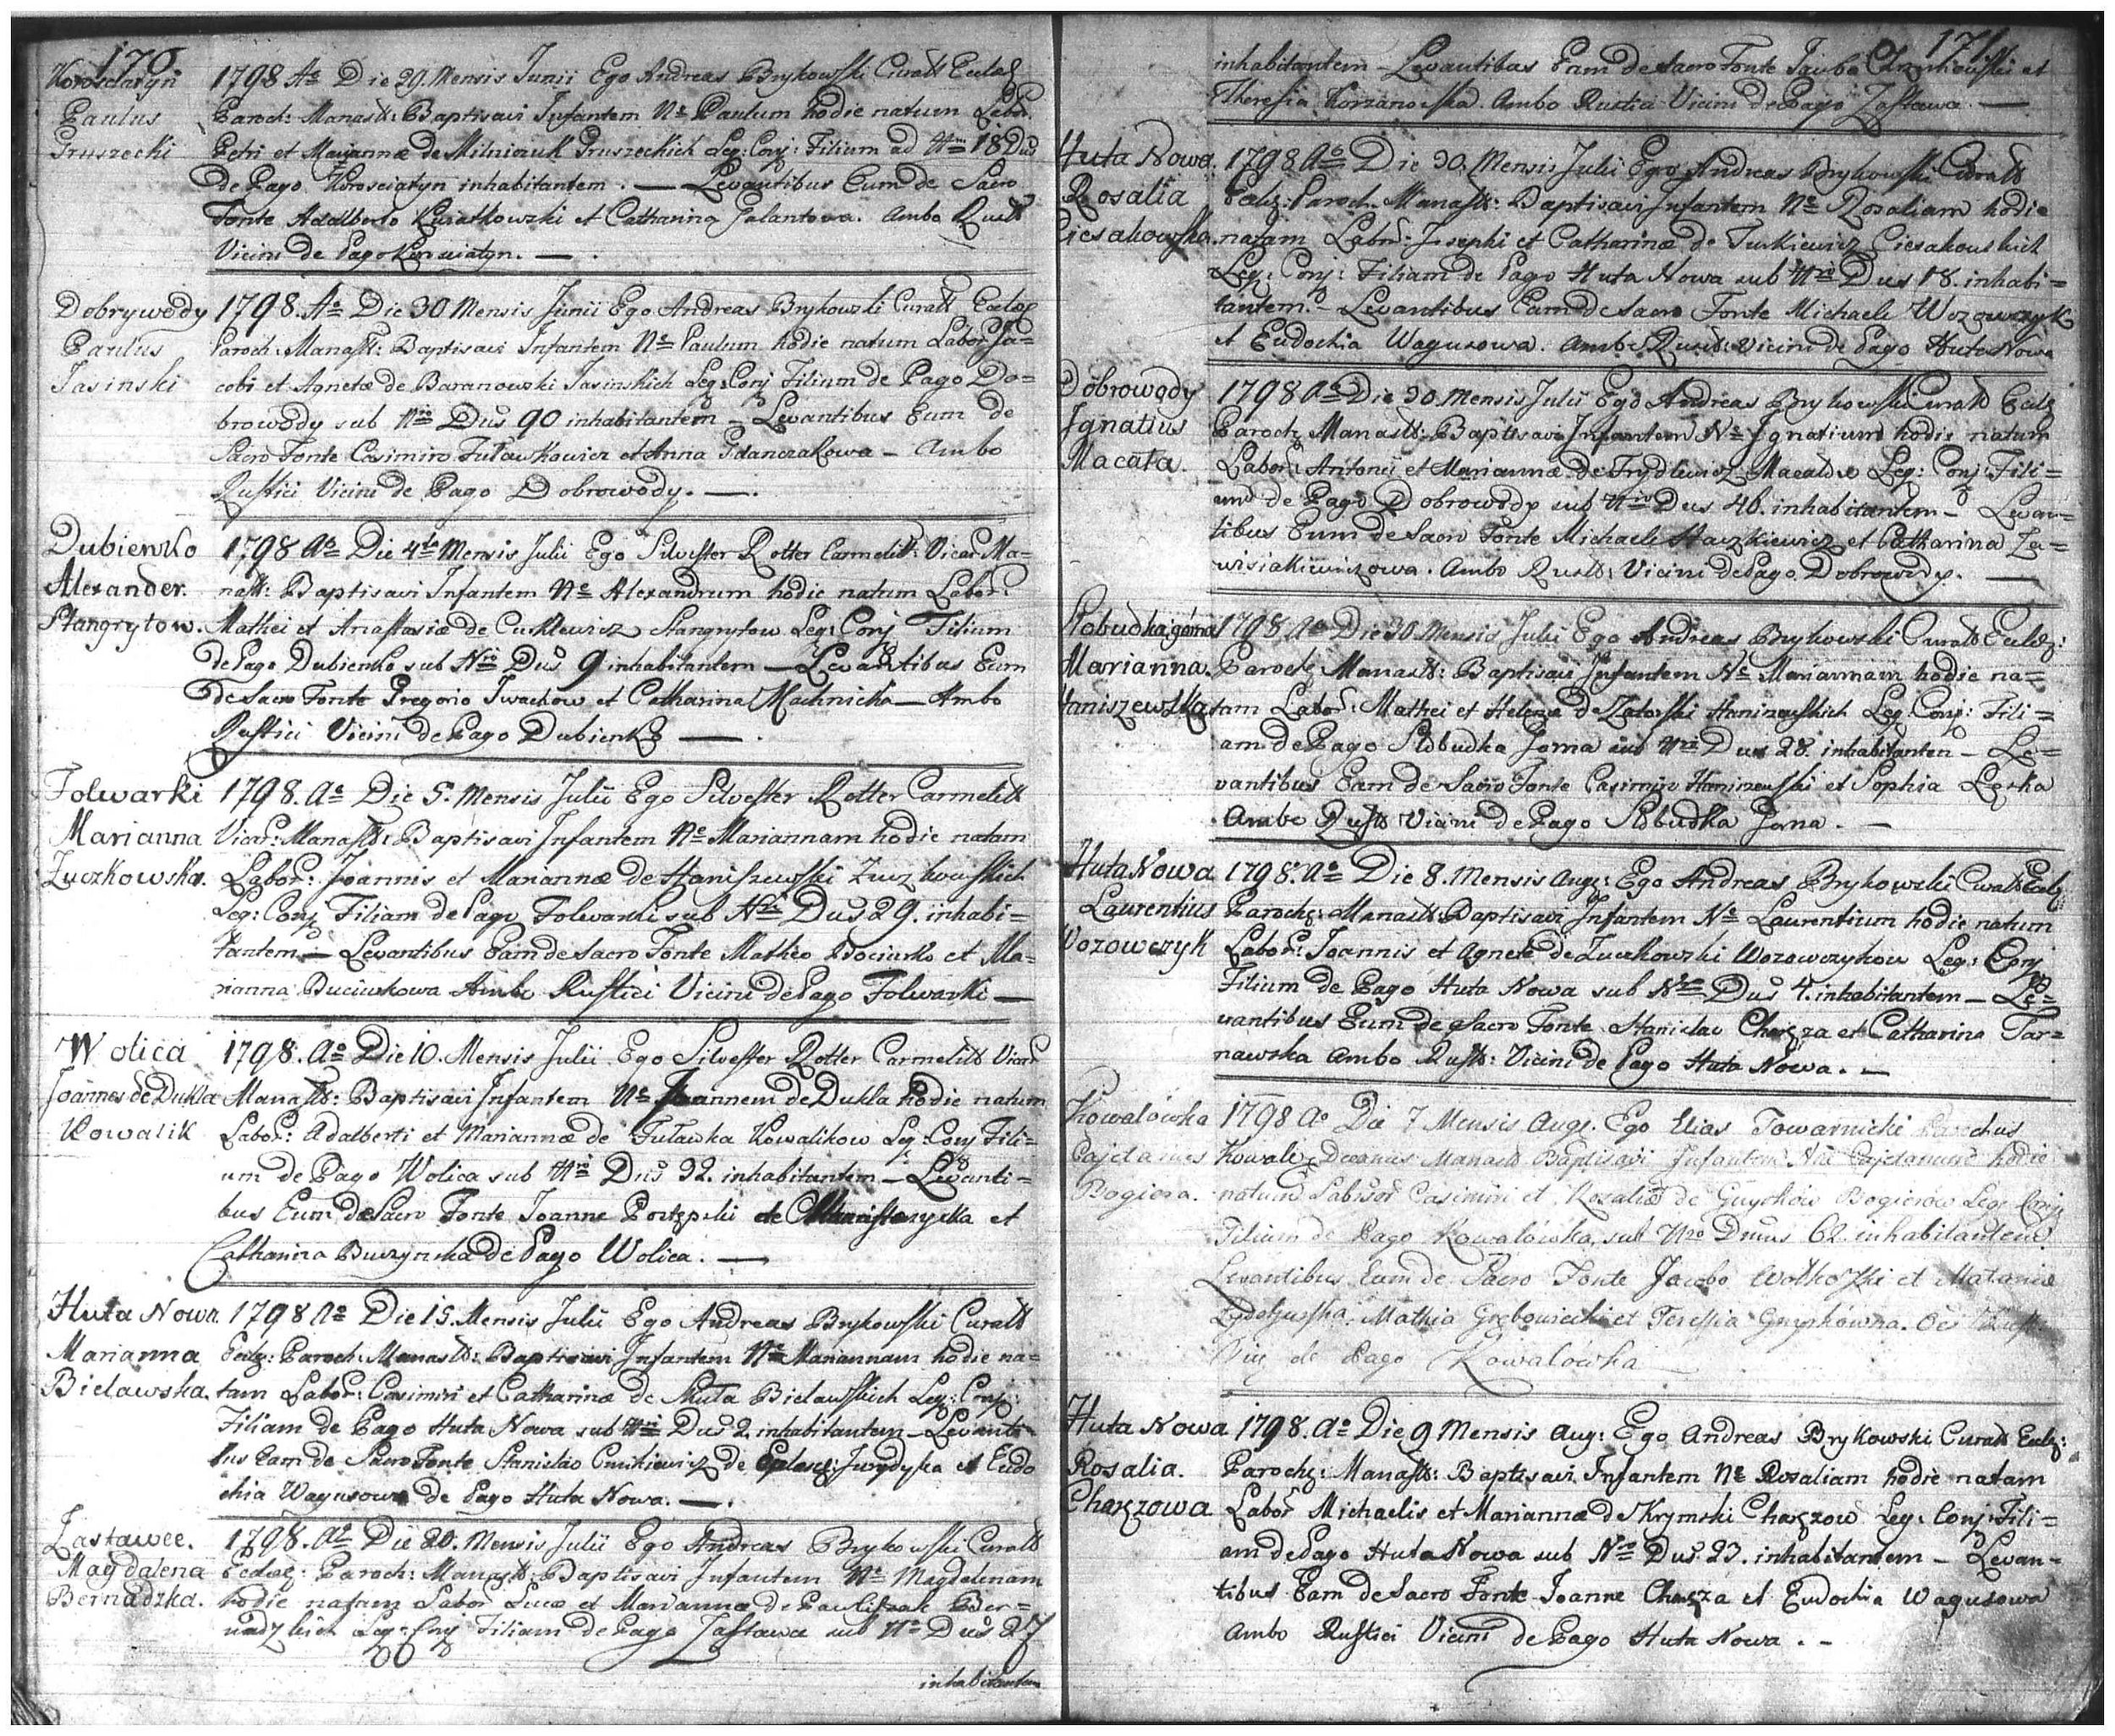 170
Korosciatyn
Paulus
Gruszecki
1798 Ao Die 29. Mensis Junii Ego Andreas Brykowski Curatt Eccles
Paroch: Manast: Baptisavi Infantem Ne Paulum hodie natum Labor:
Petri et Mariannæ de Milniczuk Gruszeckich Leg: Conj: Filium ad Nrm 18 Dus
de Pago Korosciatyn inhabitantem. — Levantibus Eum de Sacro
Fonte Adalberto Kwiatkowski et Catharina Galantowa. Ambo Rustt
Vicini de Pago Korosciatyn. —.
Dobrywody
Paulus
Jasinski
1798. Ao Die 30 Mensis Junii Ego Andreas Brykowski Curatt Eccles
Paroch: Manast: Baptisavi Infantem Ne Paulum hodie natum Labor Ja=
cobi et Agnetæ de Baranowski Jasinskich Leg: Conj Filium de Pago Do=
browody sub Nro Dus 90 inhabitantem — Levantibus Eum de
Sacro Fonte Casimiro Tuławkowicz et Anna Gdanczakowa — Ambo
Rustici Vicini de Pago Dobrowody. —.
Dubienko
Alexander.
Stangrytow.
1798 Ao Die 4ta Mensis Julii Ego Silvester Rotter Carmelitt: Vicar Ma=
nast: Baptisavi Infantem Ne Alexandrum hodie natum Labor:
Mathei et Anastasiæ de Cuklewicz Stangrytow Leg: Conj Filium
de Pago Dubienko sub Nro Dus 9 inhabitantem — Levantibus Eum
de Sacro Fonte Gregorio Iwachow et Catharina Machnicka — Ambo
Rustici Vicini de Pago Dubienko —.
Folwarki
Marianna
Zuczkowska.
1798. Ao Die 5. Mensis Julii Ego Silvester Rotter Carmelitt
Vicar: Manast: Baptisavi Infantem Ne Mariannam hodie natam
Labor: Joannis et Mariannæ de Staniszewski Zuczkowskich
Leg: Conj Filiam de Pago Folwarki sub Nro Dus 29. inhabi=
tantem — Levantibus Eam de Sacro Fonte Matheo Bociurko et Ma=
rianna Buciurkowa Ambo Rustici Vicini de Pago Folwarki —
Wolica
Joannes de Dukla
Kowalik
1798. Ao Die 10. Mensis Julii Ego Silvester Rotter Carmelitt Vicar
Manast: Baptisavi Infantem Ne Joannem de Dukla hodie natum
Labor: Adalberti et Mariannæ de Tuławka Kowalikow Leg: Conj Fili=
um de Pago Wolica sub Nro Dus 32. inhabitantem — Levanti=
bus Eum de Sacro Fonte Joanne Postępski de et
Catharina Buczynska de Pago Wolica. —
Huta Nowa.
Marianna
Bielawska.
1798 Ao Die 15. Mensis Julii Ego Andreas Brykowski Curatt
Eccles: Paroch: Manast: Baptisavi Infantem Ne Mariannam hodie na=
tam Labor: Casimiri et Catharinæ de Skuta Bielawskich Leg: Conj:
Filiam de Pago Huta Nowa sub Nro Dus 2 inhabitantem — Levanti
bus Eam de Sacro Fonte Stanislao de et Eudo
chia Wagusowa de Pago Huta Nowa. —.
Zastawce.
Magdalena
Bernadzka.
1798. Ao Die 20. Mensis Julii Ego Andreas Brykowski Curatt
Eccles: Paroch: Manast: Baptisavi Infantem Ne Magdalenam
hodie natam Labor Lucæ et Mariannæ de Pawliszak Ber=
nadzkich Leg: Conj Filiam de Pago Zastawa sub No Dus 27
inhabitantem
171
inhabitantem — Levantibus Eam de Sacro Fonte Jacobo et
Theresia Korzanowska Ambo Rustici Vicini de Pago Zastawa. —
Huta Nowa.
Rosalia
Ciesakowska.
1798 Ao Die 30. Mensis Julii Ego Andreas Brykowski Curatt
Eccles: Paroch. Manast: Baptisavi Infantem Ne Rosaliam hodie
natam Labor: Josephi et Catharinæ de Turkiewicz Ciesakowskich
Leg: Conj: Filiam de Pago Huta Nowa sub Nro Dus 18. inhabi=
tantem. — Levantibus Eam de Sacro Fonte Michaele Wozowczyk
et Eudochia Wagusowa. Ambo Rustt: Vicini de Pago Huta Nowa
Dobrowody
Ignatius
Macała.
1798 Ao Die 30 Mensis Julii Ego Andreas Brykowski Curatt Eccles
Paroch Manast: Baptisavi Infantem Ne Ignatium hodie natum
Labor: Antonii et Mariannæ de Frydlewicz Leg: Conj: Fili=
um de Pago Dobrowody sub Nro Dus 46. inhabitantem — Levan=
tibus Eum de Sacro Fonte Michaele Staszkiewicz et Catharina Za=
wisiakiewiczowa. Ambo Rustt: Vicini de Pago Dobrowody. —
Słobudka górna
Marianna.
Haniszewska
1798 Ao Die 30 Mensis Julii Ego Andreas Brykowski Curatt Eccles:
Paroch Manast: Baptisavi Infantem Ne Mariannam hodie na=
tam Labor: Mathei et Helenæ de Zatorski Haniszewskich Leg: Conj: Fili=
am de Pago Słobudka Gorna sub Nro Dus 28. inhabitantem — Le=
vantibus Eam de Sacro Fonte Casimiro Haniszewski et Sophia Leska
Ambo Rustt Vicini de Pago Słobudka Gorna. —
Huta Nowa
Laurentius
Wozowczyk
1798. Ao Die 8. Mensis Aug: Ego Andreas Brykowski Curatt Eccles
Paroch: Manast: Baptisavi Infantem Ne Laurentium hodie natum
Labor: Joannis et Agnetæ de Zuczkowski Wozowczykow Leg: Conj
Filium de Pago Huta Nowa sub Nro Dus 4. inhabitantem — Le=
vantibus Eum de Sacro Fonte Stanislao Charęza et Catharina Tar=
nawska Ambo Rustt: Vicini de Pago Huta Nowa. —
Kowalówka
Cajetanus
Bogiera.
1798 Ao Die 7 Mensis Augs. Ego Elias Towarnicki Parochus
Kowali: Decanus Manast Baptisavi Infantem Ne Cajetanum hodie
natum Labior Casimiri et Rozaliæ de Guyrkow Bogierow Leg: Conj
Filium de Pago Kowalówka, sub Nro Domus 62 inhabitantem
Levantibus Eum de Sacro Fonte Jacobo et
Mathia et Teressia
de Pago Kowalówka
Huta Nowa
Rosalia.
Charęzowa
1798. Ao Die 9 Mensis Aug: Ego Andreas Brykowski Curatt Eccles:
Paroch: Manast: Baptisavi Infantem Ne Rosaliam hodie natam
Labor Michaelis et Mariannæ de Krymski Charęzow Leg: Conj: Fili=
am de Pago Huta Nowa sub Nro Dus 23. inhabitantem — Levan=
tibus Eam de Sacro Fonte Joanne Charęza et Eudochia Wagusowa
Ambo Rustici Vicini de Pago Huta Nowa. —